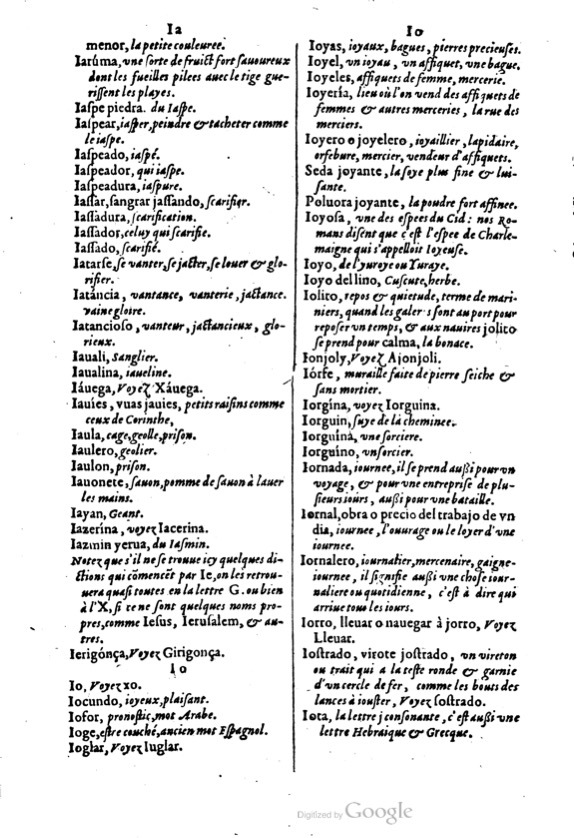 Ia
menor, la petite couleuree.
Iarúma, vne sorte de fruict fort sauoureux
dont les fueilles pilees auec le tige gue-
rissent les playes.
Iaſpe piedra. du Iaſpe.
Iaſpear, iaſper, peindre & tacheter comme
le iaſpe.
Iaſpeado, iaſpé.
Iaſpeador, qui iaſpe.
Iaſpeadura, iaſpure.
Iaſſar, ſangrar jaſſando, ſcarifier.
Iaſſadura, ſcarification.
Iaſſador, celuy qui ſcarifie.
Iaſſado, ſcarifié.
Iatarſe, ſe vanter, ſe jacter, ſe louer & glo-
rifier.
Iatáncia, vantance, vanterie, jactance.
vaine gloire.
Iatancioſo, vanteur, jactancieux, glo-
rieux.
Iauali, Sanglier.
Iaualina, iaueline.
Iáuega, Voyez Xáuega.
Iauíes, vuas jauíes, petits raiſins comme
ceux de Corinthe,
Iaula, cage, geolle, priſon.
Iaulero, geolier.
Iaulon, priſon.
Iauonete, ſauon, pomme de ſauon à lauer
les mains.
Iayan, Geant.
Iazerína, voyez Iacerina.
Iazinin yerua, du Iaſmin.
Notez que s'il ne ſe trouue icy quelques di-
ctions qui cõmencẽt par Ie, on les retrou-
uera quaſi toutes en la lettre G. ou bien
à l'X, ſi ce ne ſont quelques noms pro-
pres, comme Ieſus, Ieruſalem, & au-
tres.
Ierigónça, Voyez Girigonça.
Io
Io, Voyez xo.
Iocundo, ioyeux, plaiſant.
Iofor, pronoſtic, mot Arabe.
Ioge, eſtre couché, ancien mot Eſpagnol.
Ioglar, Voyez Iuglar.
Io
Ioyas, ioyaux, bagues, pierres precieuſes.
Ioyel, vn ioyau, vn affiquet, vne bague.
Ioyeles, affiquets de femme, mercerie.
Ioyería, lieu où l'on vend des affiquets de
femmes & autres merceries, la rue des
merciers.
Ioyero o joyelero, ioyaillier, lapidaire,
orfebure, mercier, vendeur d'affiquets.
Seda joyante, la ſoye plus fine & lui-
ſante.
Poluora joyante, la poudre fort affinee.
Ioyoſa, vne des eſpees du Cid: nos Ro-
mans diſent que c'eſt l'eſpee de Charle-
maigne qui s'appelloit Ioyeuſe.
Ioyo, de l'yuroye ou Yuraye.
Ioyo del lino, Cuſcute, herbe.
Iolito, repos & quietude, terme de mari-
niers, quand les galer's ſont au port pour
repoſer vn temps, & aux nauires jolito
ſe prend pour calma, la bonace.
Ionjoly, Voyez Ajonjoli.
Iórfe, muraille faite de pierre ſeiche &
ſans mortier.
Iorgina, voyez Iorguina.
Iorguin, ſuye de la cheminee.
Iorguína, vne ſorciere.
Iorguíno, vn ſorcier.
Iornada, iournee, il ſe prend außi pour vn
voyage, & pour vne entrepriſe de plu-
ſieurs iours, außi pour vne bataille.
Iornal, obra o precio del trabajo de vn
dia, iournee, l'ouurage ou le loyer d'vne
iournee.
Iornalero, iournalier, mercenaire, gaigne-
iournee, il ſignifie außi vne choſe iour-
naliere ou quotidienne, c'eſt à dire qui
arriue tous les iours.
Iorro, lleuar o nauegar à jorro, Voyez
Lleuar.
Ioſtrado, virote joſtrado, vn vireton
ou trait qui a la teſte ronde & garnie
d'vn cercle de fer, comme les bouts des
lances à iouſter, Voyez ſoſtrado.
Iota, la lettre j conſonante, c'eſt außi vne
lettre Hebraique & Grecque.
Digitized by Google